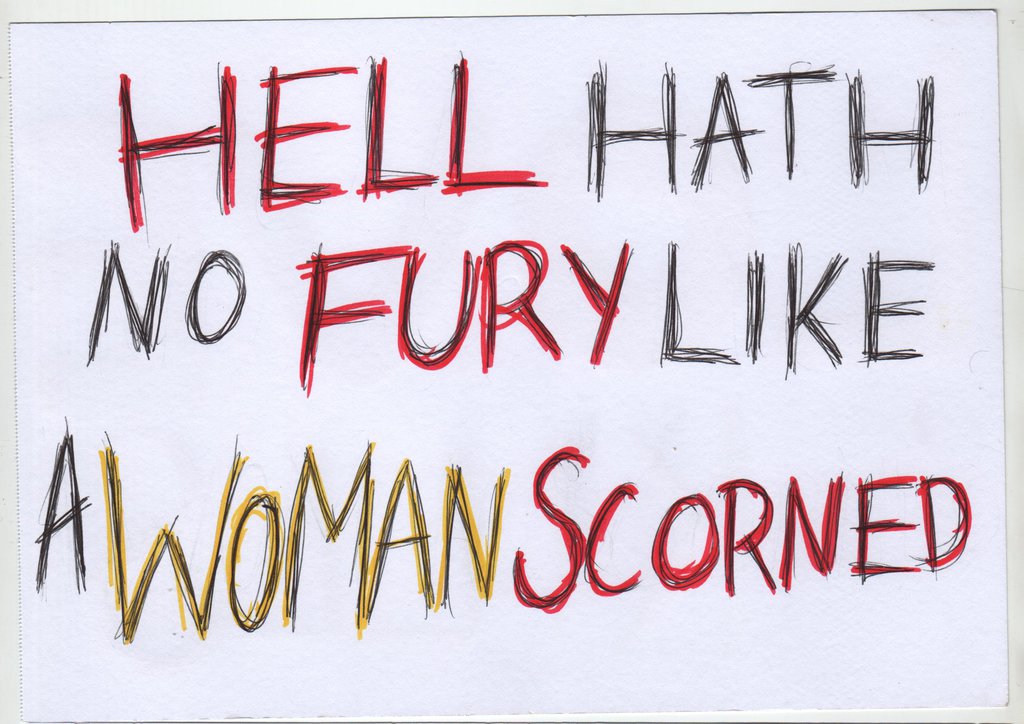 HELL HATH
NO FURY LIKE
A WOMAN SCORNED